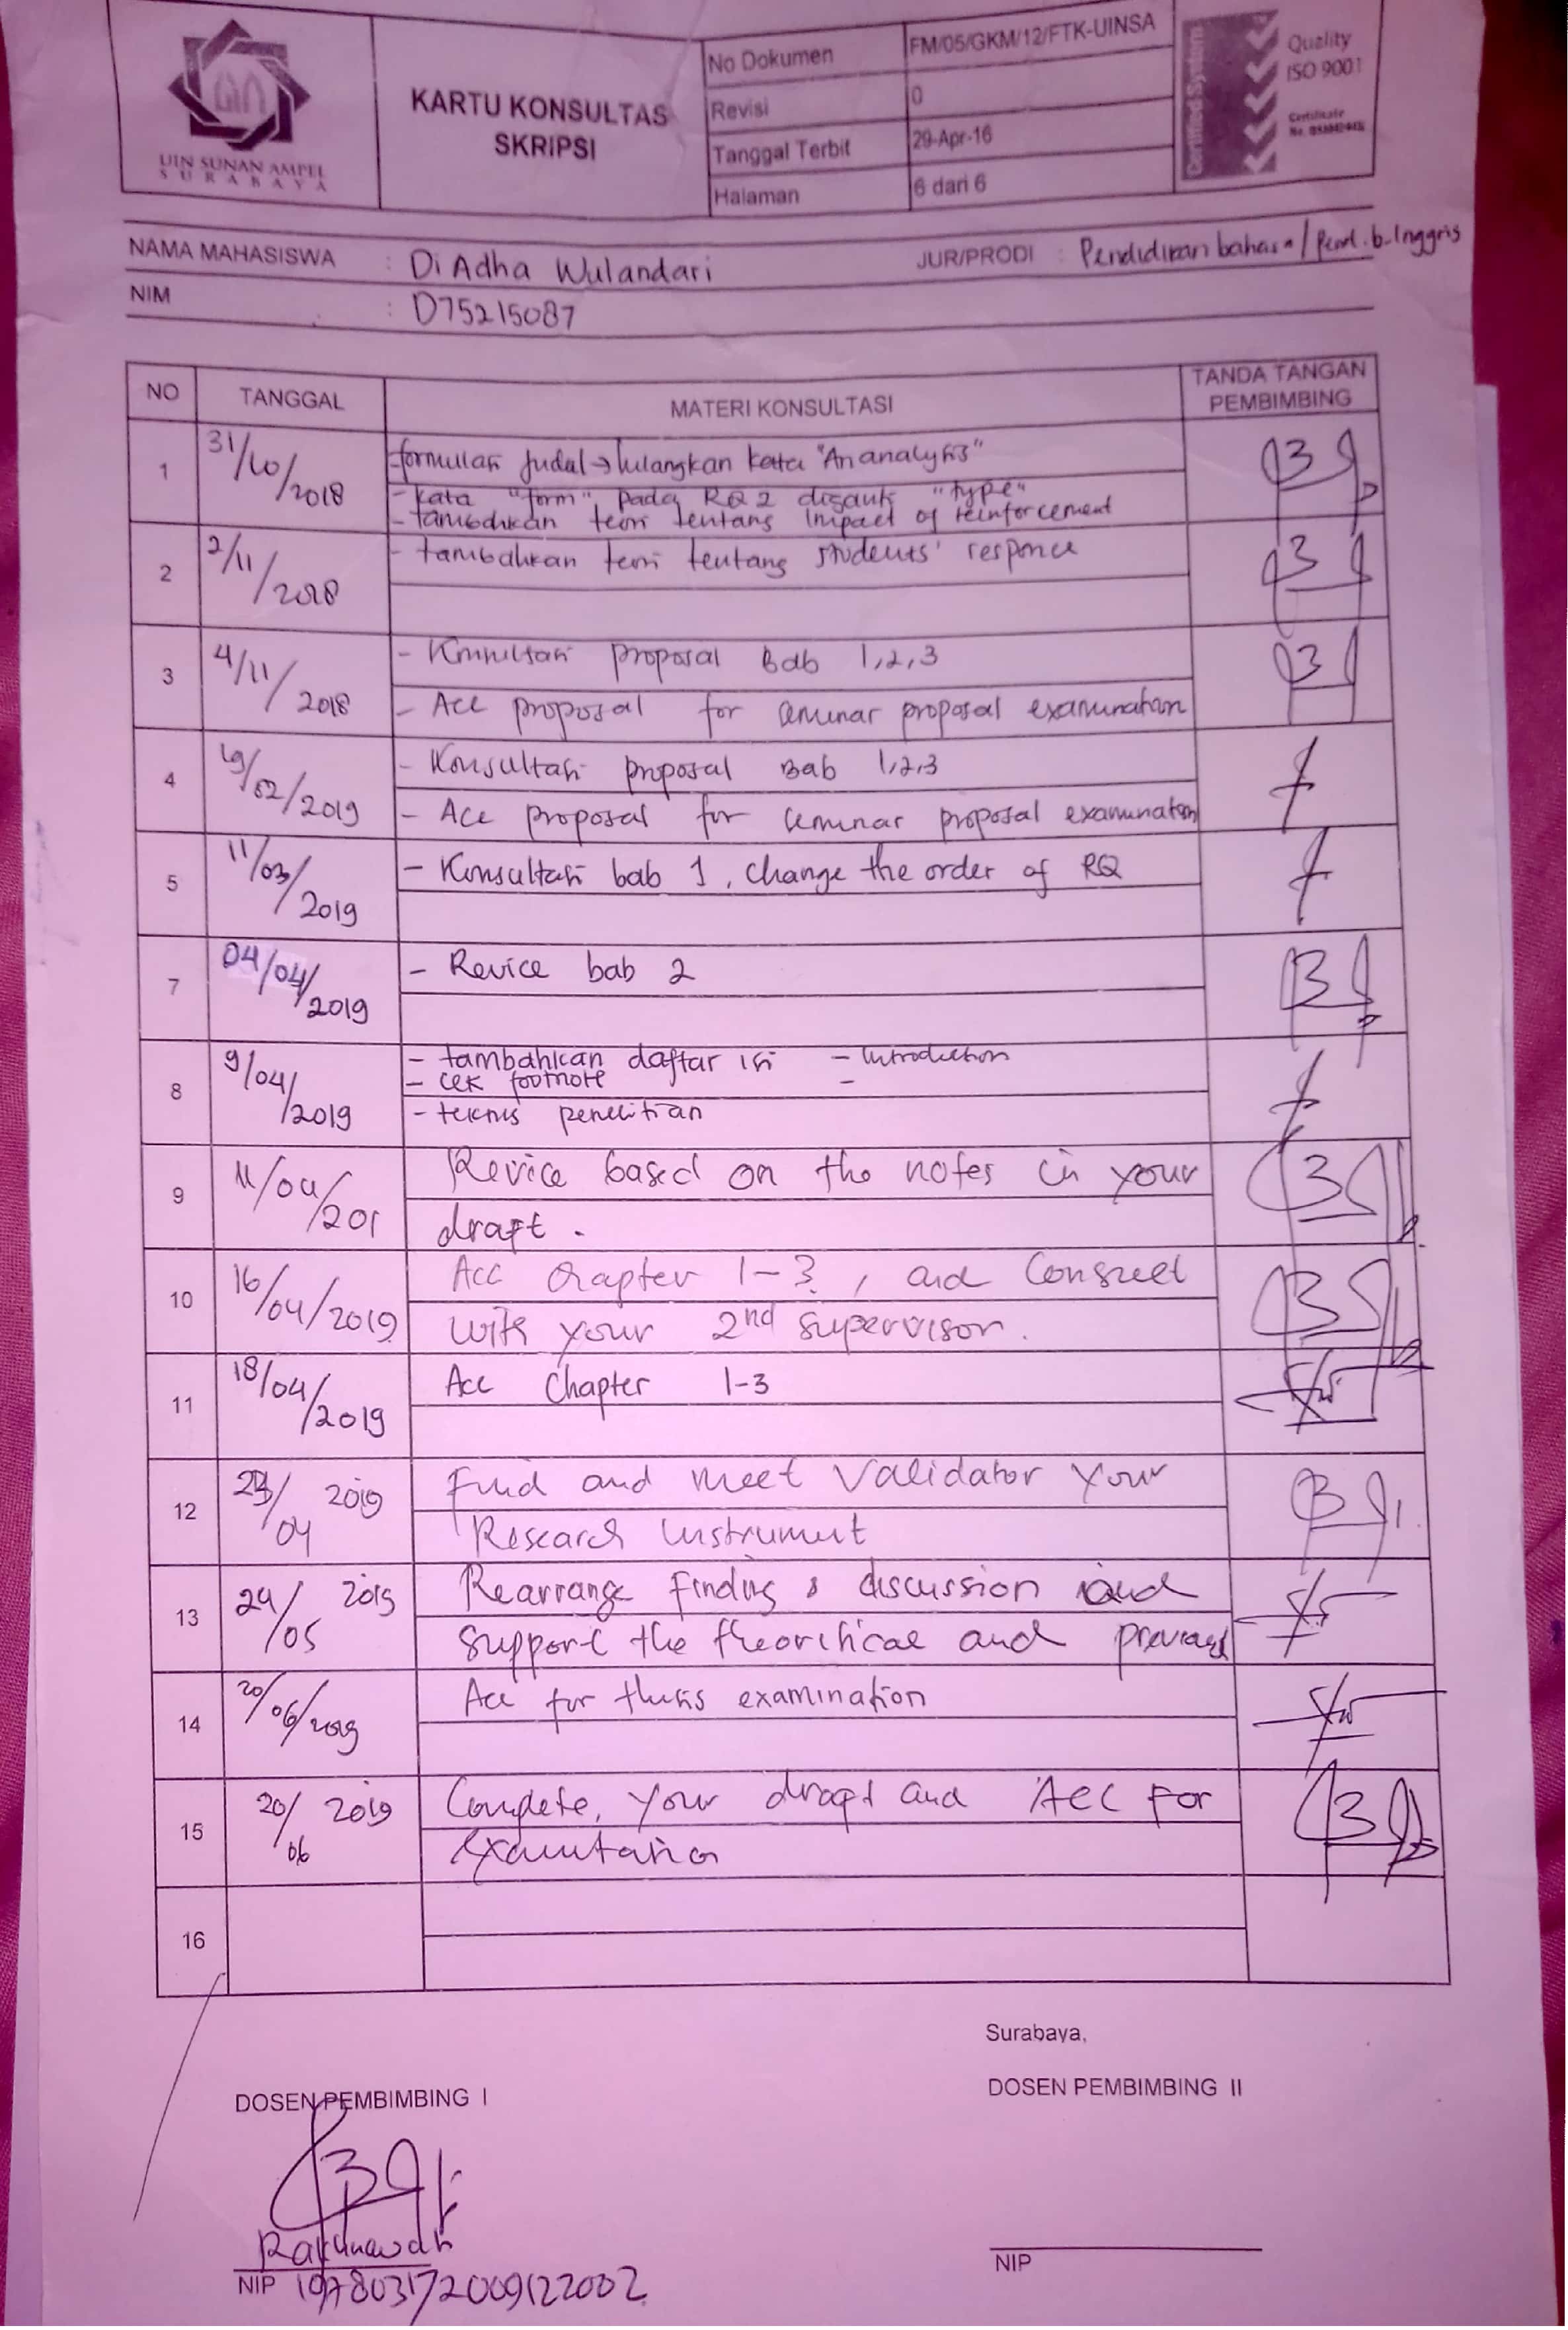 UIN SUNAN AMPEL
SURABAYA
KARTU KONSULTAS
SKRIPSI
No Dokumen FM/05/GKM/12/FTK-UINSA
Revisi 0
Tanggal Terbit 29-Apr-16
Halaman 6 dari 6
Certified System
Quality
ISO 9001
Certificate
NAMA MAHASISWA : Di Adha Wulandari JUR/PRODI : Pendidikan bahasa / Pend. b. Inggris
NIM : D75215087
NO TANGGAL MATERI KONSULTASI TANDA TANGAN PEMBIMBING
1 31/10/2018 - formulasi judul → hilangkan kata "An analysis"
- kata "form" pada RQ 2 diganti "type"
- tambahkan teori tentang impact of reinforcement
2 2/11/2018 - tambahkan teori tentang students' responce
3 4/11/2018 - Konsultasi proposal Bab 1,2,3
- Acc proposal for ceminar proposal examination
4 /02/2019 - Konsultasi proposal Bab 1,2,3
- Acc proposal for ceminar proposal examination
5 11/03/2019 - Konsultasi bab 1, change the order of RQ
7 04/04/2019 - Revice bab 2
8 9/04/2019 - tambahkan daftar isi - Introduction
- cek footnote -
- teknis penelitian
9 11/04/201 Revice based on the notes in your
draft.
10 16/04/2019 Acc chapter 1-3, and Consult
with your 2nd supervisor.
11 18/04/2019 Acc Chapter 1-3
12 /04 2019 Find and meet Validator your
Research Instrument
13 24/05 2019 Rearrange finding & discussion and
support the theoritical and previous
14 20/06/2019 Acc for thesis examination
15 20/06 2019 Complete, your draft and ACC For
examination
16
Surabaya,
DOSEN PEMBIMBING I DOSEN PEMBIMBING II
Rakhmawati
NIP 197803172009122002 NIP